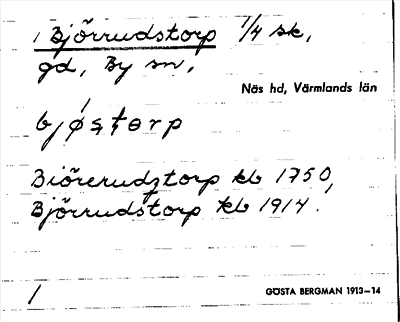 1 Bjõrrudstorp 1/4 sk,
gd, By sn,
Näs hd, Värmlands län
bjǿʂtɵrp
Biõrerudztorp kb 1750,
Bjõrrudstorp kb 1914.
1
GÖSTA BERGMAN 1913–14